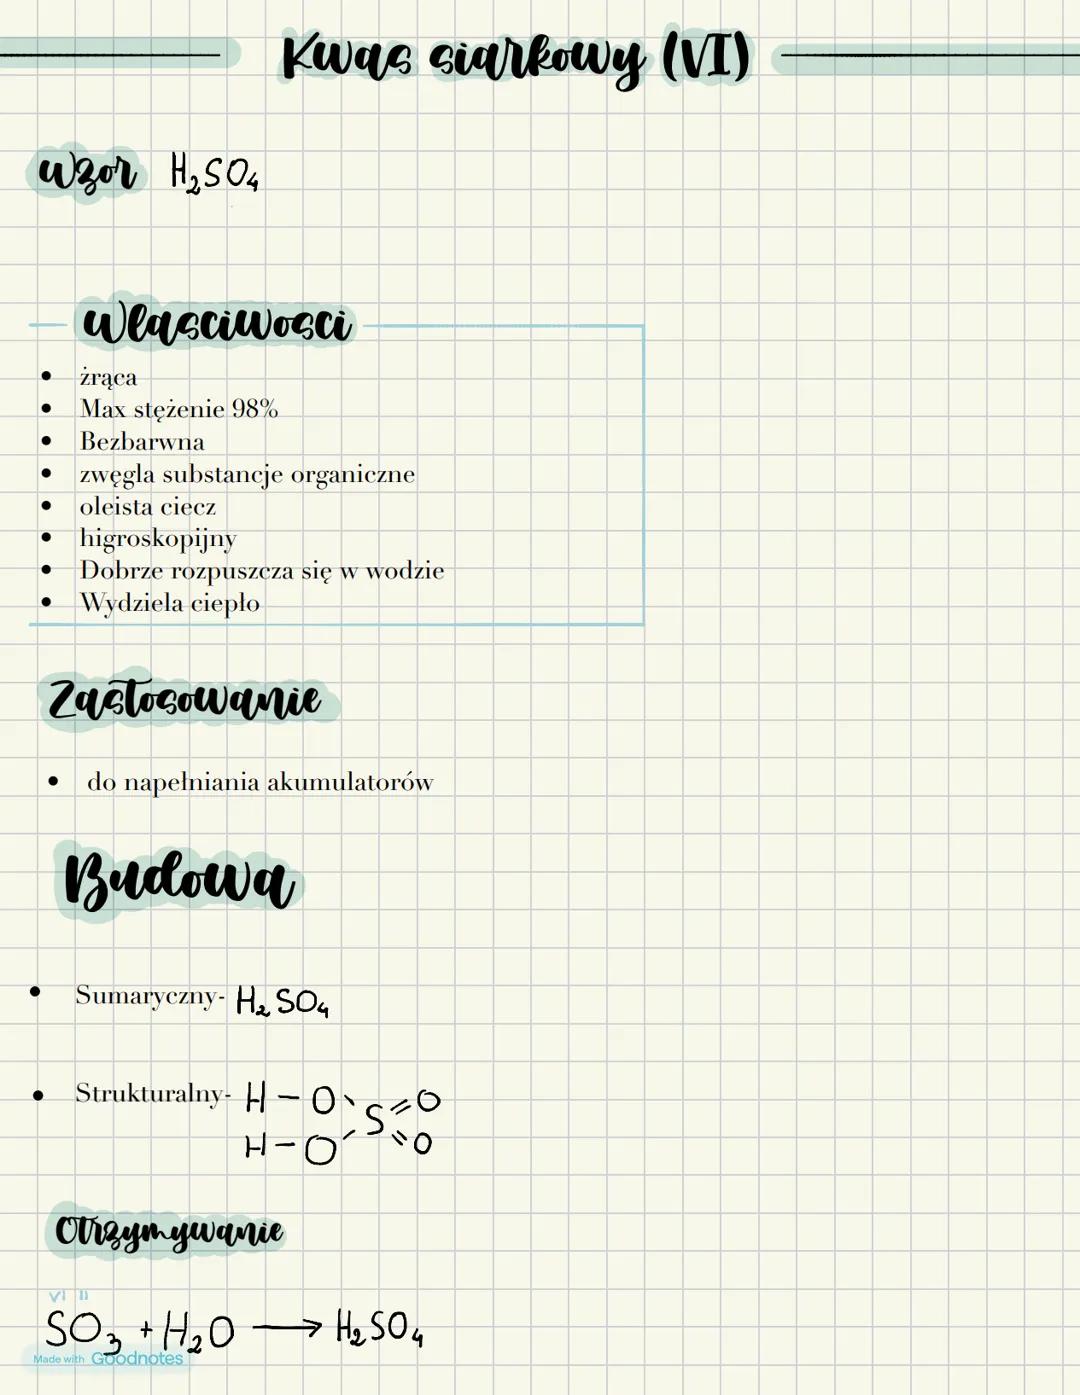 Kwas siarkowy (VI)
Wzor H₂SO₄
Wlasciwosci
• żrąca
• Max stężenie 98%
• Bezbarwna
• zwęgla substancje organiczne
• oleista ciecz
• higroskopijny
• Dobrze rozpuszcza się w wodzie
• Wydziela ciepło
Zastosowanie
• do napełniania akumulatorów
Budowa
• Sumaryczny- H₂SO₄
• Strukturalny- H – O \ S = O
H – O / = O
Otrzymywanie
VI II
SO₃ + H₂O ⟶ H₂SO₄
Made with Goodnotes